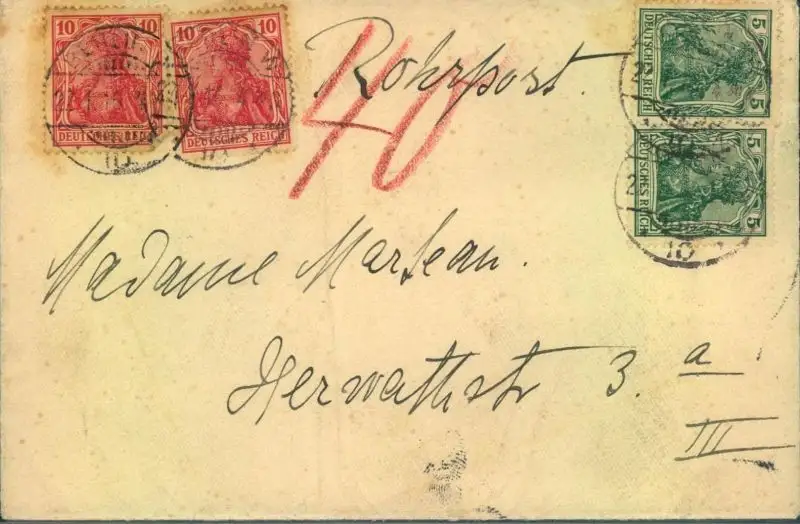 10 10 5
DEUTSCHES REICH DEUTSCHES REICH
5 DEUTSCHES REICH 5
5 DEUTSCHES REICH 5
Rohrpost.
40
10
10
Madame Marseau.
Herwathstr 3. a
III